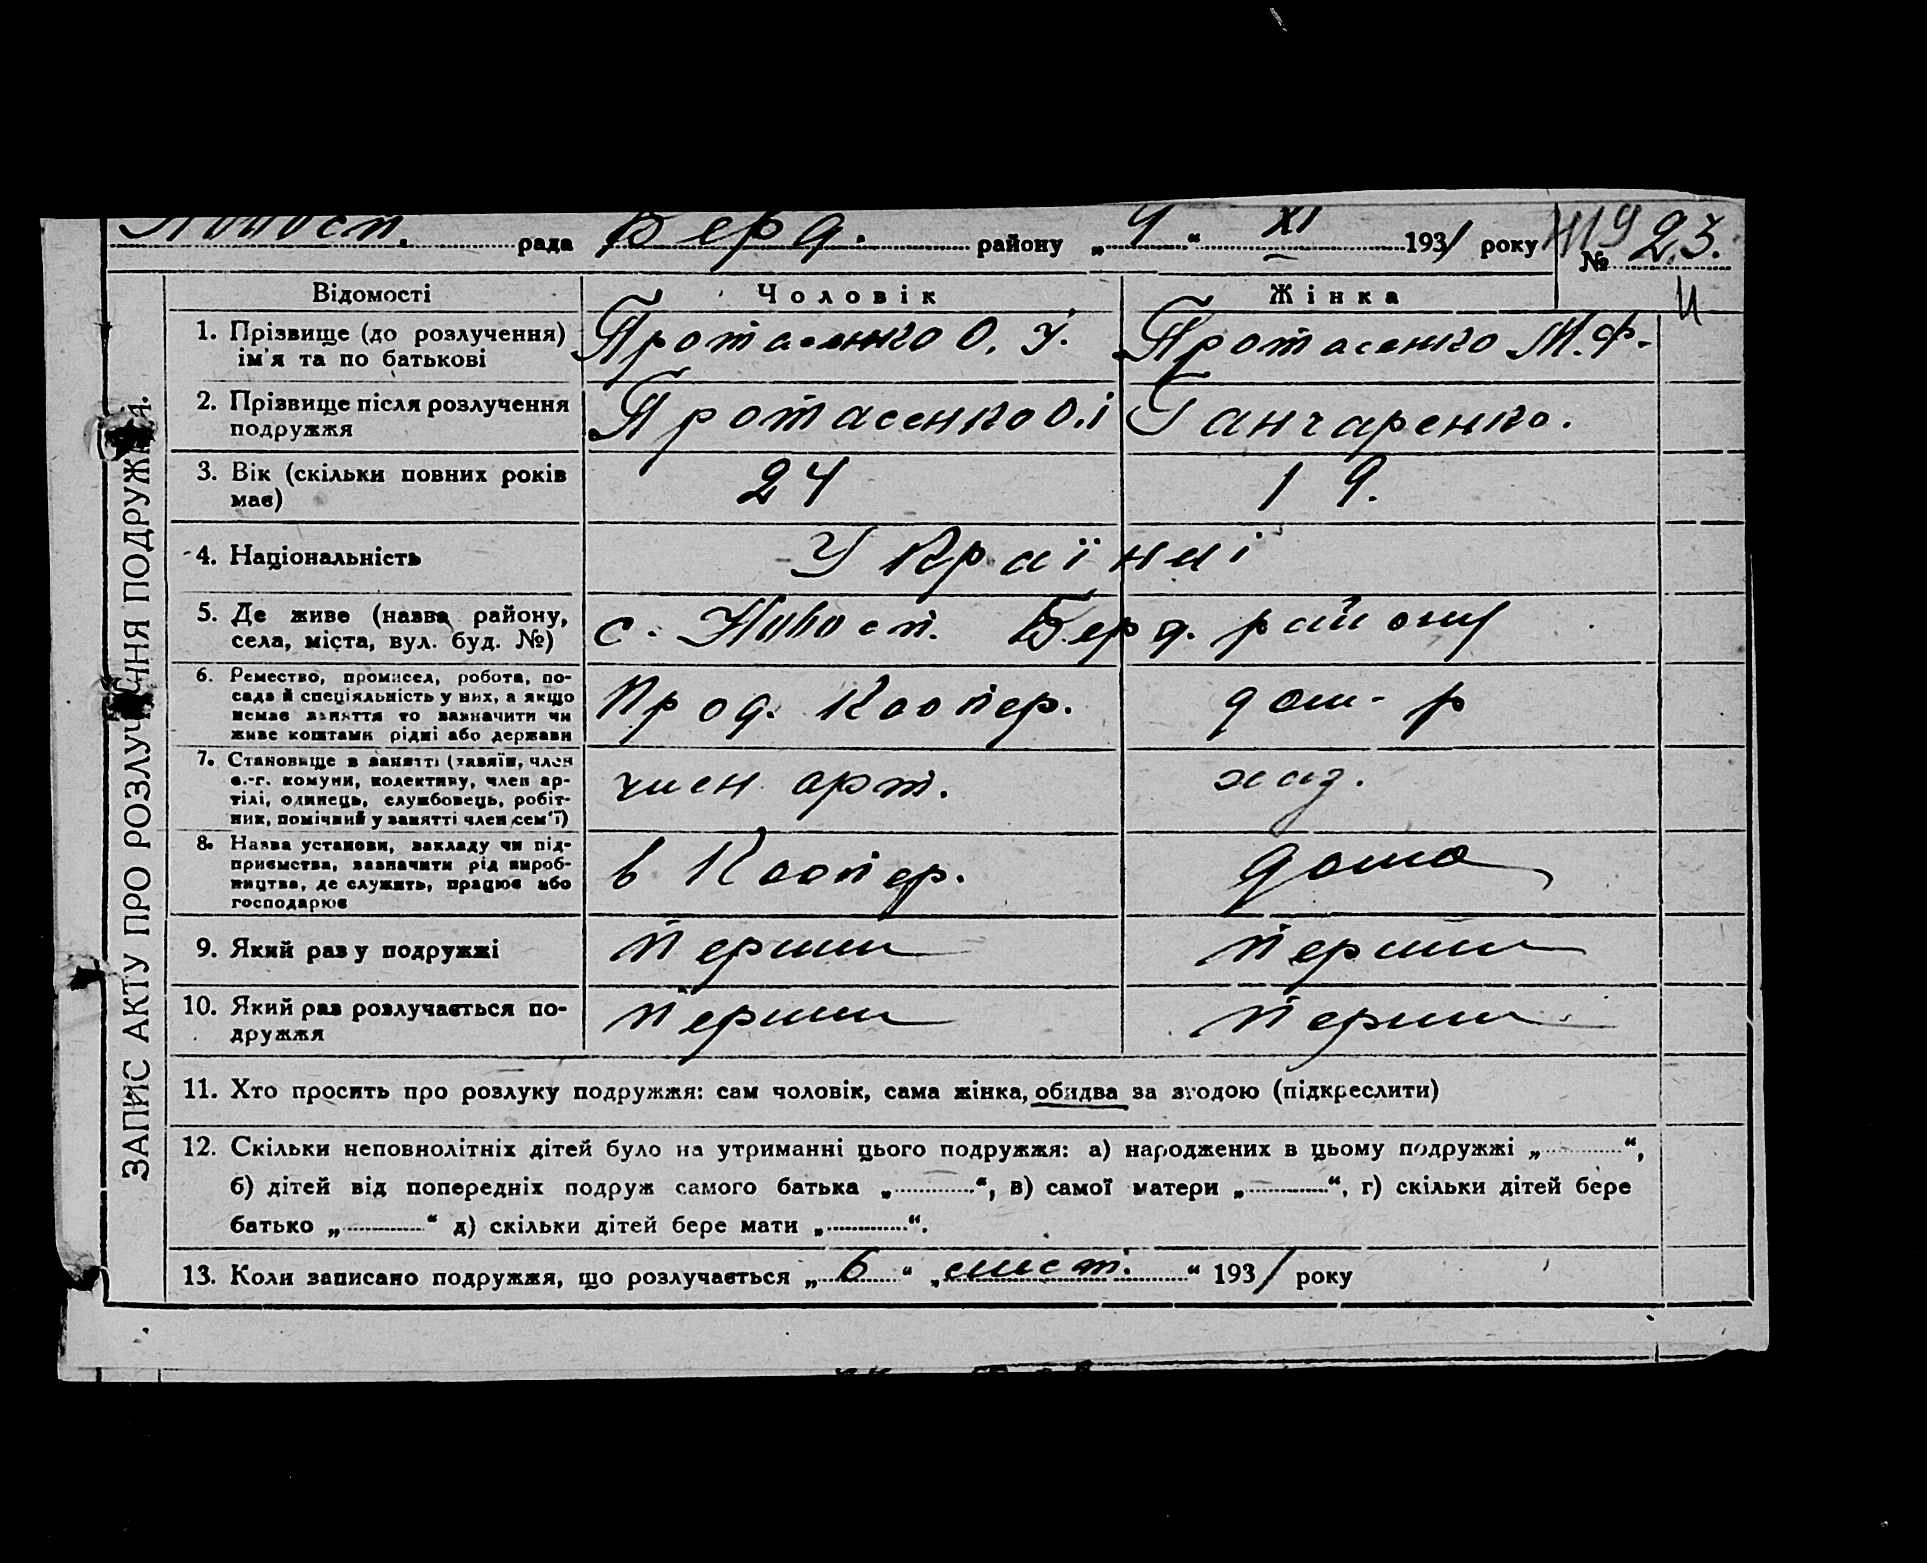 Новосп. рада Берд. району „4“ XI 1931 року № 23.
ЗАПИС АКТУ ПРО РОЗЛУЧЕННЯ ПОДРУЖЖЯ.
Відомості Чоловік Жінка
1. Прізвище (до розлучення) ім'я та по батькові Протасенко О. І. Протасенко М. Ф.
2. Прізвище після розлучення подружжя Протасенко О. і Ганчаренко.
3. Вік (скільки повних років має) 24 19.
4. Національність Українці
5. Де живе (назва району, села, міста, вул. буд. №) с. Новосп. Берд. району
6. Ремество, промисел, робота, посада й спеціяльність у них, а якщо немає заняття то зазначити чи живе коштами рідні або держави Прод. Коопер. дом- р
7. Становище в занятті (хазяїн, член с.-г. комуни, колективу, член артілі, одинець, службовець, робітник, помічний у занятті член сем'ї) член арт. хаз.
8. Назва установи, закладу чи підприємства, зазначити рід виробництва, де служить, працює або господарює в Коопер. дома
9. Який раз у подружжі перши перши
10. Який раз розлучається подружжя перши перши
11. Хто просить про розлуку подружжя: сам чоловік, сама жінка, обидва за згодою (підкреслити)
12. Скільки неповнолітніх дітей було на утриманні цього подружжя: а) народжених в цьому подружжі „..........“,
б) дітей від попередніх подруж самого батька „..........“, в) самої матери „..........“, г) скільки дітей бере
батько „..........“ д) скільки дітей бере мати „..........“.
13. Коли записано подружжя, що розлучається „6“ „лист.“ 1931 року